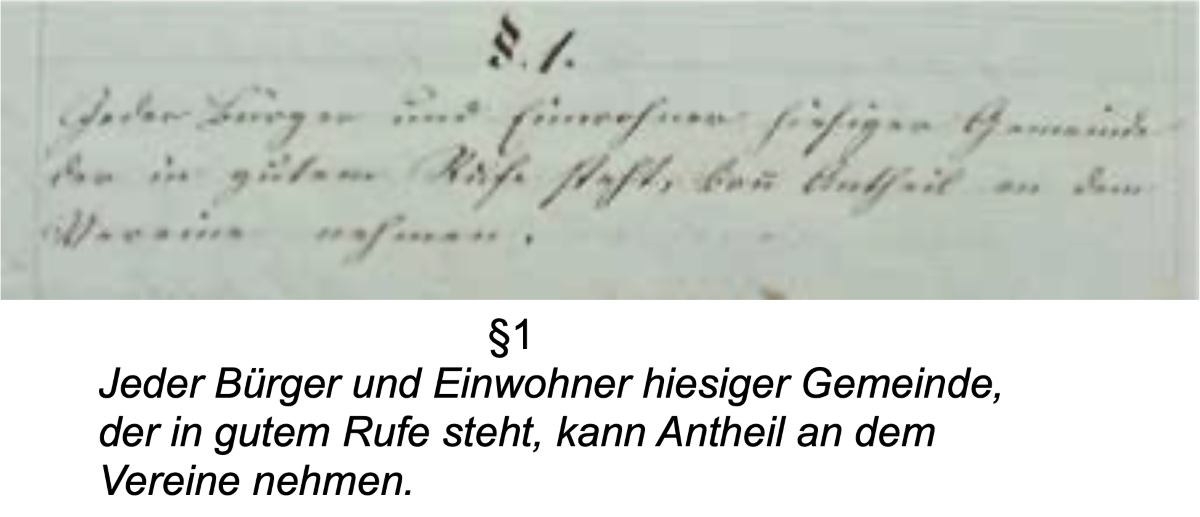 §. 1.
Jeder Bürger und Einwohner hiesiger Gemeinde
der in gutem Rufe steht, kan̄ Antheil an dem
Vereine nehmen.
§1
Jeder Bürger und Einwohner hiesiger Gemeinde,
der in gutem Rufe steht, kann Antheil an dem
Vereine nehmen.